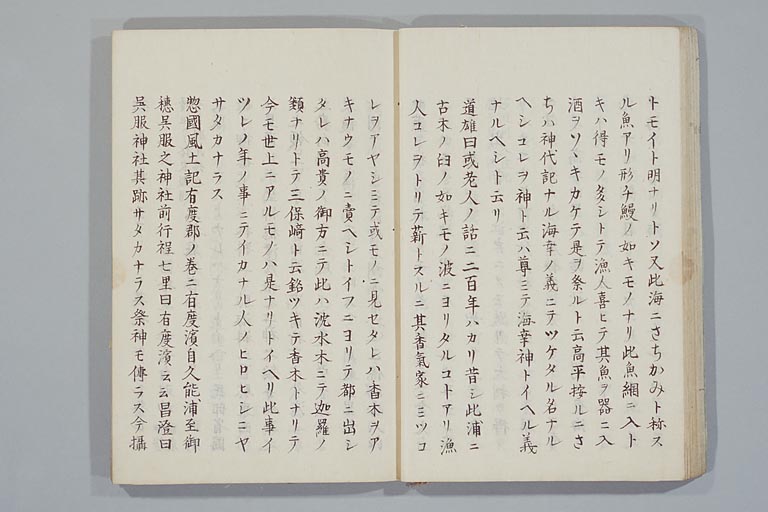 トモイト明ナリトソ又此海ニさちかみト称ス
ル魚アリ形チ鰻ノ如キモノナリ此魚網ニ入ト
キハ得モノ多シトテ漁人喜ヒテ其魚ヲ器ニ入
酒ヲソヽキカケテ是ヲ祭ルト云高平按ルニさ
ちハ神代記ナル海幸ノ義ニテツケタル名ナル
ヘシコレヲ神ト云ハ尊ミテ海幸神トイヘル義
ナルヘシト云リ
道雄曰或老人ノ話ニ二百年ハカリ昔シ此浦ニ
古木ノ臼ノ如キモノ波ニヨリタルコトアリ漁
人コレヲトリテ薪トスルニ其香氣家ニミツコ
レヲアヤシミテ或モノニ見セタレハ香木ヲア
キナウモノニ賣ヘシトイフニヨリテ都ニ出シ
タレハ高貴ノ御方ニテ此ハ沈水木ニテ迦羅ノ
類ナリトテ三保﨑ト云銘ツキテ香木トナリテ
今モ世上ニアルモノハ是ナリトイヘリ此事イ
ツレノ年ノ事ニテイカナル人ノヒロヒシニヤ
サタカナラス
惣國風土記有度郡ノ巻ニ有度濱自久能浦至御
穂呉服之神社前行程七里曰有度濱云云昌澄曰
呉服神社其跡サタカナラス祭神モ傳ラス今攝